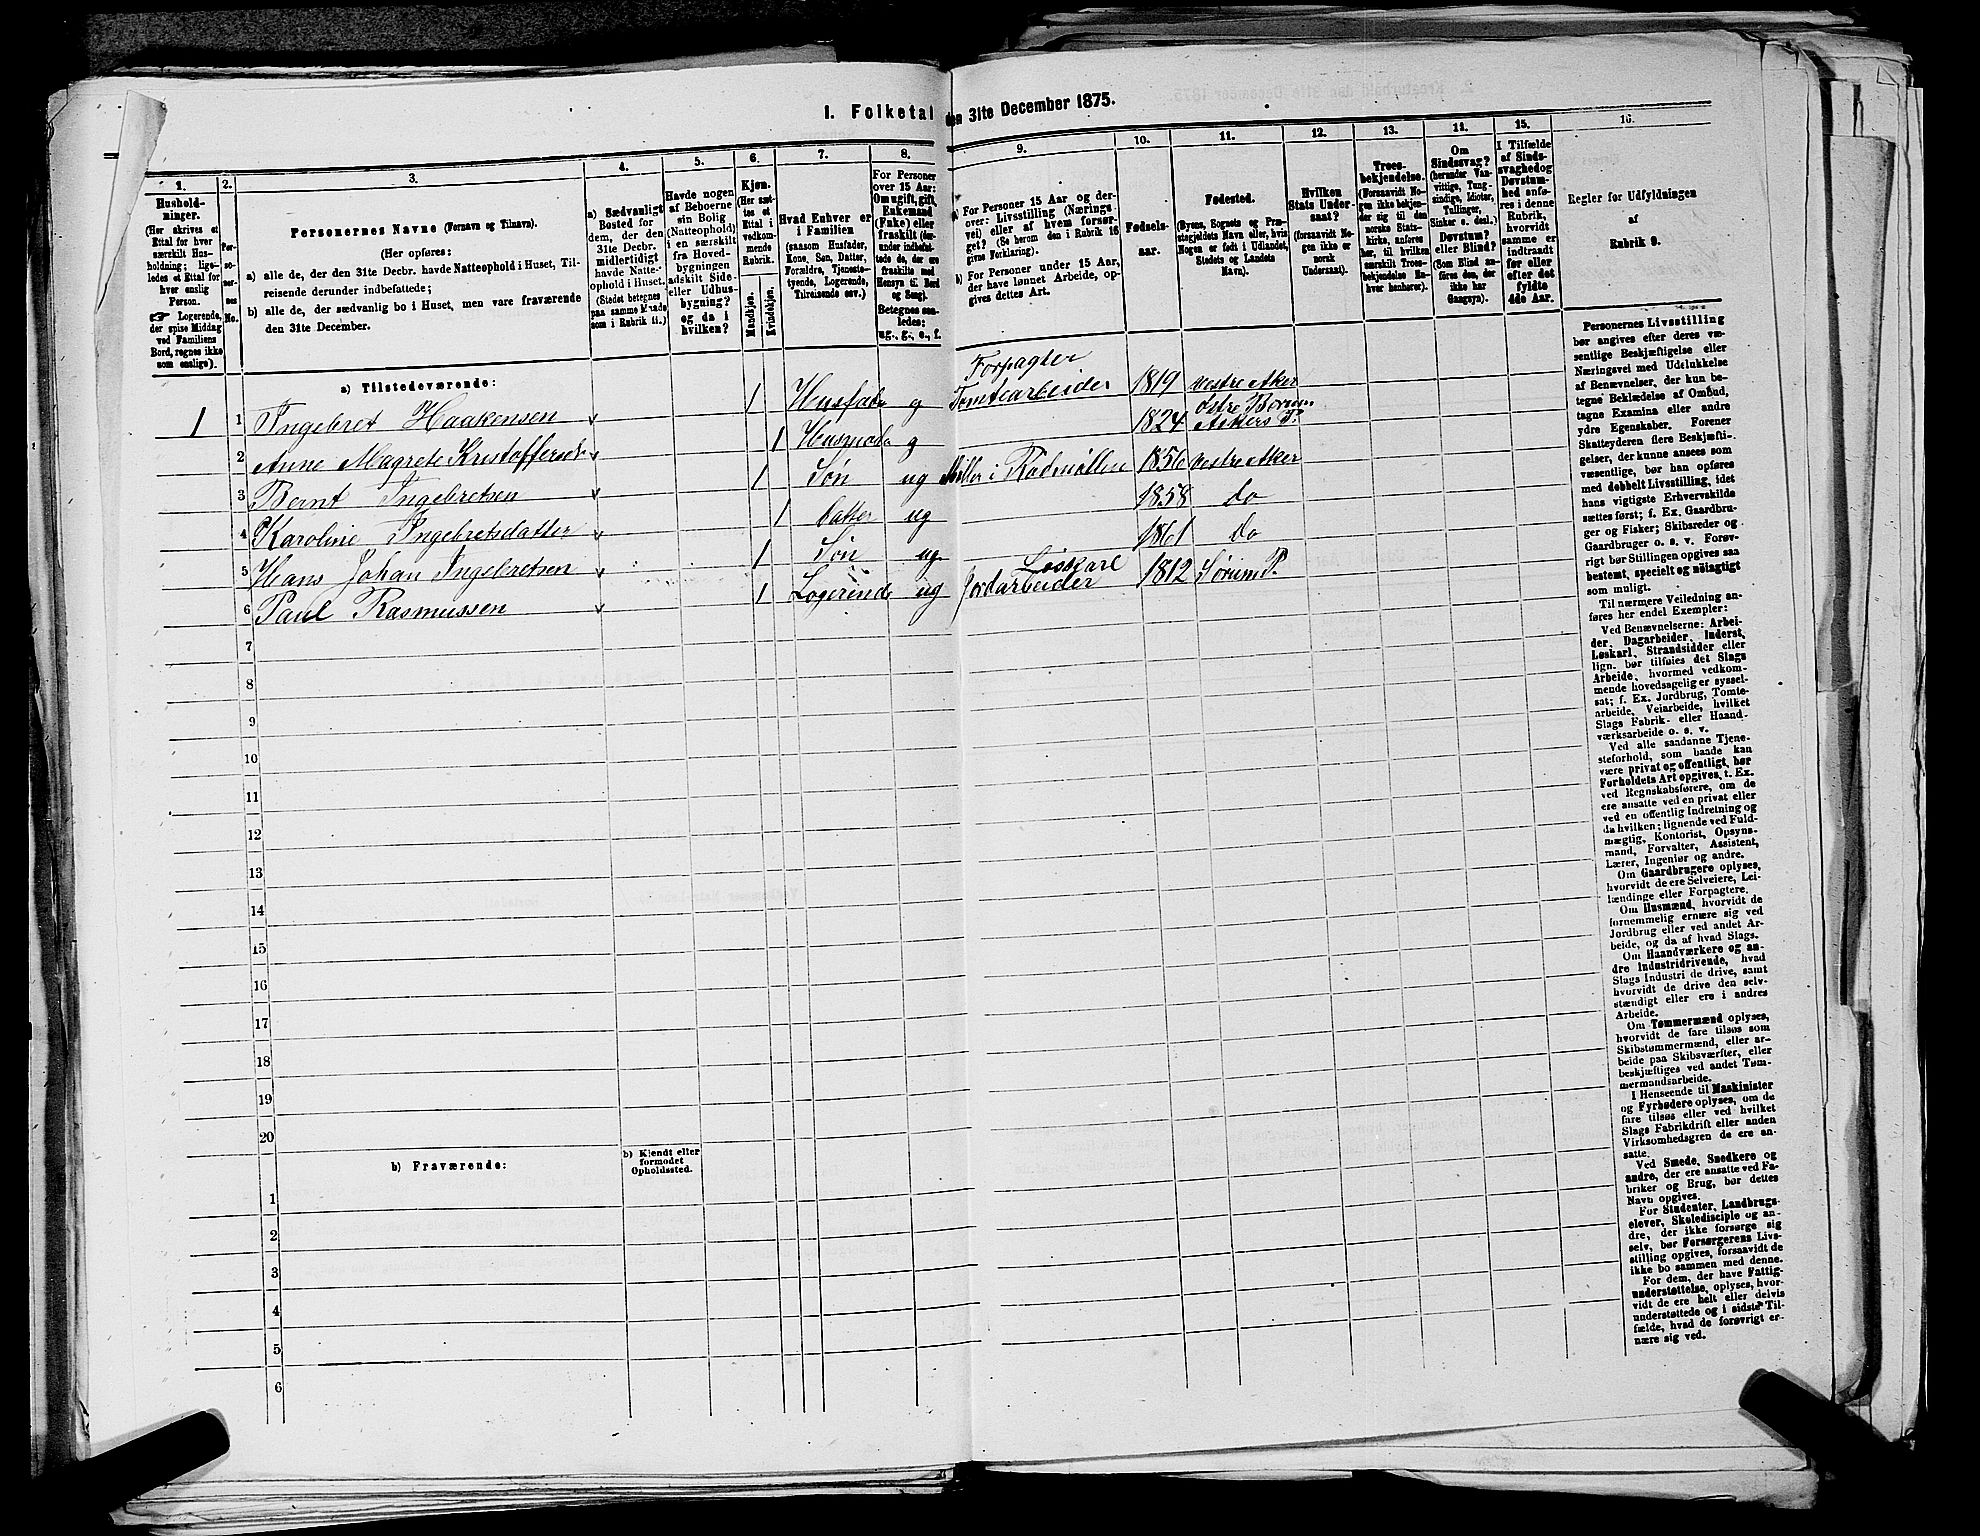 1. Folketal den 31te December 1875.
1. 2. 3. 4. 5. 6. 7. 8. 9. 10. 11. 12. 13. 14. 15. 16.
Husholdninger.
(Her skrives et
Ettal for hver
særskilt Husholdning; ligeledes
et Ettal for
hver enslig
Person.
☞ Logerende,
der spise Middag
ved Familiens
Bord, regnes ikke
som enslige).
Personernes No.
Personernes Navne (Fornavn og Tilnavn).
(Her opføres:
a) alle de, der den 31te Decbr. havde Natteophold i Huset, Tilreisende
derunder indbefattede;
b) alle de, der sædvanlig bo i Huset, men vare fraværende
den 31te December.
a) Sædvanligt
Bosted for
dem, der den
31te Decbr.
midlertidigt
havde Natteophold
i Huset.
(Stedet betegnes
paa samme Maade
som i Rubrik 11.)
Havde nogen
af Beboerne
sin Bolig
(Natteophold)
i en særskilt
fra Hovedbygningen
adskilt Side-
eller Udhusbygning?
og da i
hvilken?
Kjøn.
(Her sættes
et
Ettal i
vedkommende
Rubrik.
Mandkjøn.
Kvindekjøn.
Hvad Enhver er
i Familien
(saasom Husfader,
Kone, Søn, Datter,
Forældre, Tjenestetyende,
Logerende,
Tilreisende osv.)
For Personer
over 15 Aar:
Om ugift, gift,
Enkemand
(Enke) eller
fraskilt (herunder
indbefattede
de, der ere
fraskilte med
Hensyn til Bord
og Seng).
Betegnes saaledes:
ug., g., e., f.
a) For Personer 15 Aar og derover:
Livsstilling (Næringsvei)
eller af hvem forsørget?
(Se herom den i Rubrik 16
gives Forklaring).
b) For Personer under 15 Aar,
der have lønnet Arbeide, opgives
dettes Art.
Fødselsaar.
Fødested.
(Byens, Sognets og Præstegjeldets
Navn eller, hvis
Nogen er født i Udlandet,
Stedets og Landets
Navn).
Hvilken
Stats Undersaat?
(forsaavidt Nogen
ikke er
norsk
Undersaat).
Troesbekjendelse.
(Forsaavidt Nogen
ikke bekjender
sig til den
norske Statskirke,
anføres
her, til hvilken
særskilt Troesbekjendelse
Enhver
henhører).
Om
Sindssvag?
(herunder Vanvittige,
Tungsindige,
Idioter,
Tullinger,
Sinker o. desl.)
Døvstum?
eller Blind?
(Som Blind anføres
den, der
ikke har
Gangsyn).
I Tilfælde
af Sindssvaghed
og
Døvstumhed
anføres
i denne
Rubrik,
hvorvidt
samme er
indtraadt
før eller
efter det
fyldte
4de Aar.
Regler for Udfyldningen
af
Rubrik 9.
a) Tilstedeværende:
1 1 Ingebret Haakensen v 1 Husfader g Forpagter Tomtearbeider 1819 vestre Aker
2 Anne Magrete Kristoffersdr v 1 Husmoder g 1824 østre Berum Askers P.
3 Bernt Ingebretsen v 1 Søn ug Møller i Rødmøllen 1856 vestre Aker
4 Karoline Ingebretsdatter v 1 Datter ug 1858 do
5 Hans Johan Ingebretsen v 1 Søn ug 1861 do
6 Paul Rasmussen v 1 Logerende ug Løskarl Jordarbeider 1812 Sørum P.
7
8
9
10
11
12
13
14
15
16
17
18
19
20
b) Fraværende:
b) Kjendt eller
formodet
Opholdssted.
1
2
3
4
5
6
Personernes Livsstilling
bør angives efter deres væsentlige
Beskjæftigelse eller
Næringsvei med Udelukkelse
af Benævnelser, der kun betegne
Beklædelse af Ombud,
tagne Examina eller andre
ydre Egenskaber. Forener
Skatteyderen flere Beskjæftigelser,
der kunne ansees som
væsentlige, bør han opføres
med dobbelt Livsstilling, idet
hans vigtigste Erhvervskilde
sættes først; f. Ex. Gaardbruger
og Fisker; Skibsreder og
Gaardbruger o. s. v. Forøvrigt
bør Stillingen opgives saa
bestemt, specielt og nöiagtigt
som muligt.
Til nærmere Veiledning anføres
her endel Exempler:
Ved Benævnelserne: Arbeider,
Dagarbeider, Inderst,
Løskarl, Strandsidder eller
lign. bør tilføies det Slags
Arbeide, hvormed vedkommende
hovedsagelig er sysselsat;
f. Ex. Jordbrug, Tomtearbeide,
Veiarbeide, hvilket
Slags Fabrik- eller Haandværksarbeide
o. s. v.
Ved alle saadanne Tjenesteforhold,
som baade kan
være privat og offentligt, bør
Forholdets Art opgives, t. Ex.
ved Regnskabsførere, om de
ere ansatte ved en privat eller
ved en offentlig Indretning og
da hvilken; lignende ved Fuldmægtig,
Kontorist, Opsynsmand,
Forvalter, Assistent,
Lærer, Ingeniør og andre.
Om Gaardbrugere oplyses,
hvorvidt de ere Selveiere, Leilændinge
eller Forpagtere.
Om Husmænd, hvorvidt de
fornemmelig ernære sig ved
Jordbrug eller ved andet Arbeide,
og da af hvad Slags.
Om Haandværkere og andre
Industridrivende, hvad
Slags Industri de drive, samt
hvorvidt de drive den selvstændigt
eller ere i andres
Arbeide.
Om Tømmermænd oplyses,
hvorvidt de fare tilsøs som
Skibstømmermænd, eller arbeide
paa Skibsværfter, eller
beskjæftiges ved andet Tømmermandsarbeide.
I Henseende til Maskinister
og Fyrbødere oplyses, om de
fare tilsøs eller ved hvilket
Slags Fabrikdrift eller anden
Virksomhedsgren de ere ansatte.
Ved Smede, Snedkere og
andre, der ere ansatte ved Fabriker
og Brug, bør dettes
Navn opgives.
For Studenter, Landbrugselever,
Skoledisciple og andre,
der ikke forsørge sig
selv, bør Forsørgerens Livsstilling
opgives, forsaavidt de
ikke bo sammen med denne.
For dem, der have Fattigunderstøttelse,
oplyses, hvorvidt
de ere helt eller delvis
understøttede og i sidste Tilfælde,
hvad de forøvrigt ernære
sig ved.